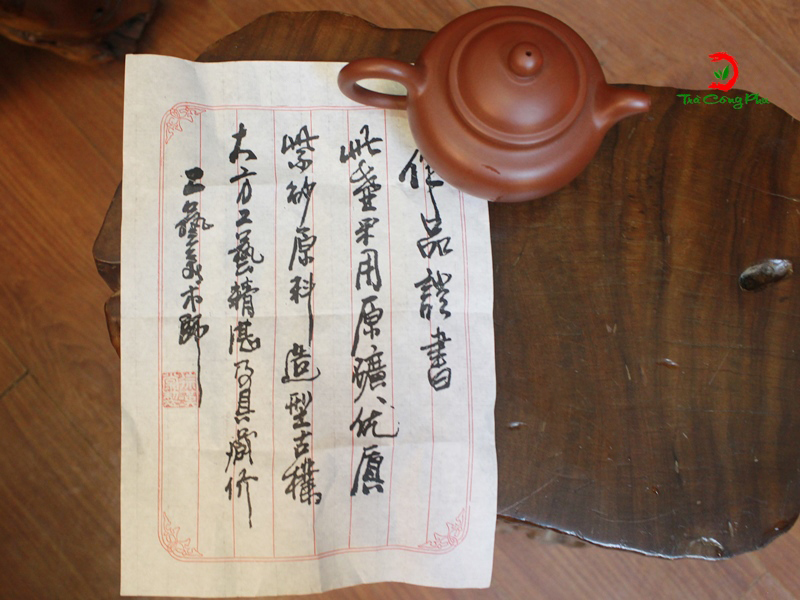 作品證書
此壺采用原礦优质
紫砂原料造型古樸
大方工藝精湛乃具藏价
工藝美术師
Trà Công Phu